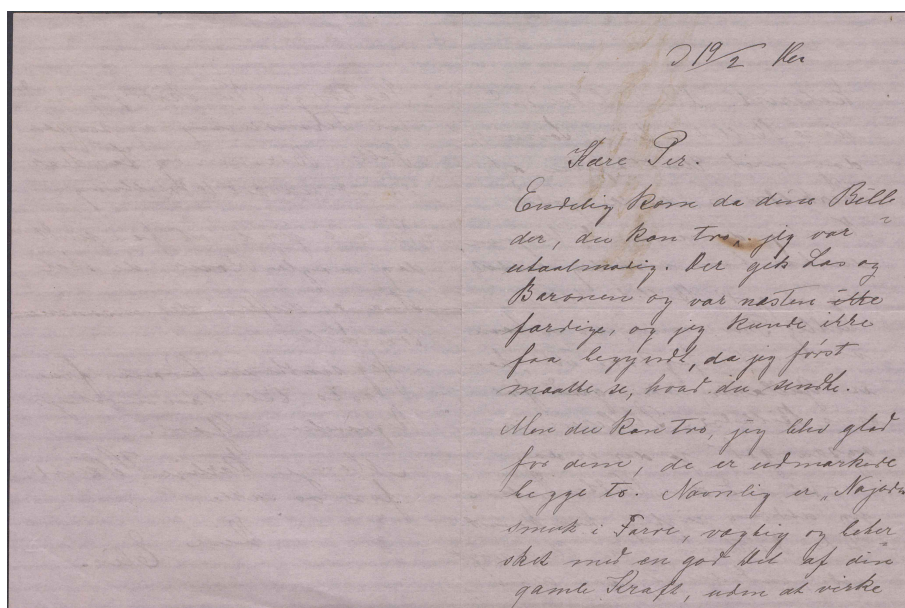 D 19/2
Kære Per.
Endelig kom da dine Bille
der, du kan tro, jeg var
utaalmodig. Der gik Las og
Baronen og var næsten ikke
færdige, og jeg kunde ikke
faa begyndt, da jeg først
maatte se, hvad du sendte.
Men du kan tro, jeg blev glad
for dem, de er udmærkede
begge to. Navnlig er „Najaden
smuk i Farve, vægtig og beher
sket med en god Del af din
gamle Kraft, uden at virke